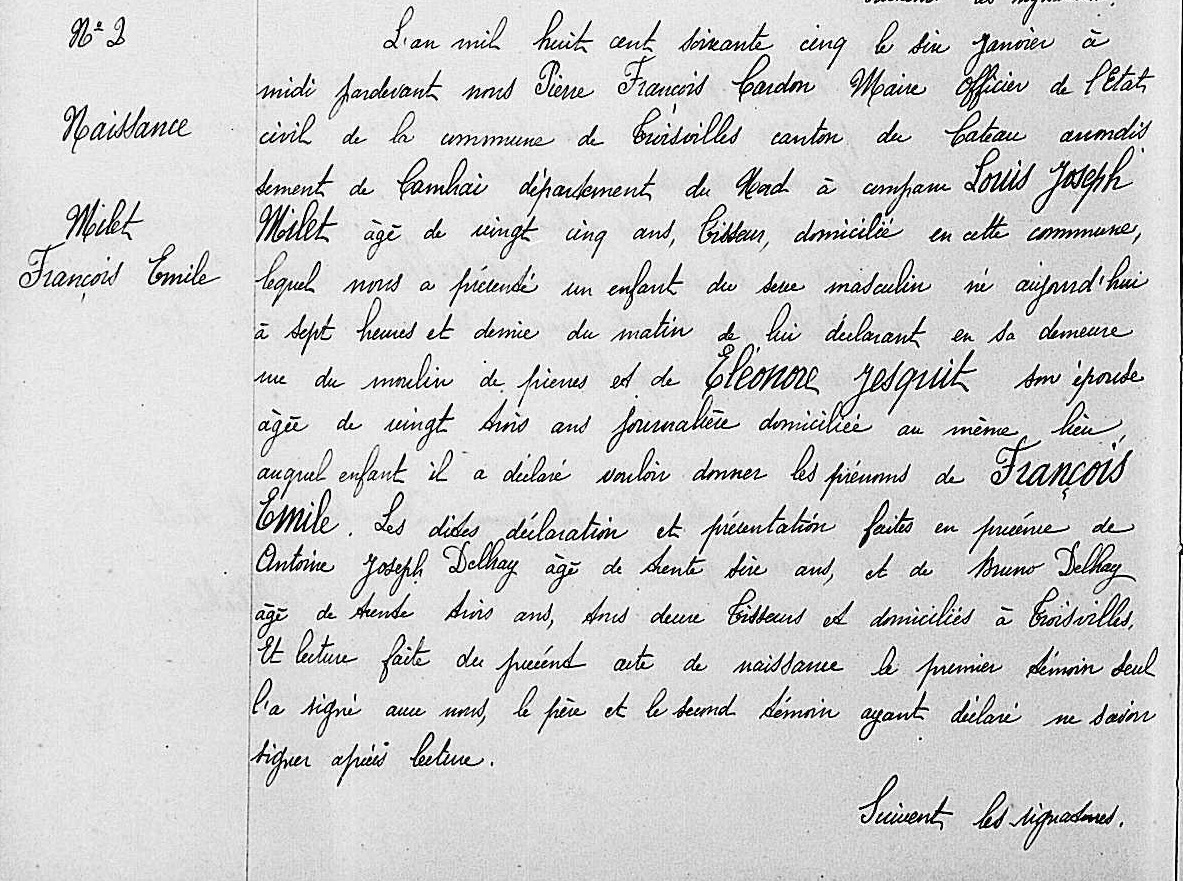 Nº 2
Naissance
Milet
François Emile
L'an mil huit cent soixante cinq le six janvier à
midi pardevant nous Pierre François Cardon Maire Officier de l'Etat
civil de la commune de Troisvilles canton du Cateau arrondis
sement de Cambrai département du Nord à comparu Louis Joseph
Milet âgé de vingt cinq ans, Tisseur, domicilié en cette commune,
lequel nous a présenté un enfant du sexe masculin né aujourd'hui
à sept heures et demie du matin de lui déclarant en sa demeure
rue du moulin de pierres et de Eléonore Jesquit son épouse
âgée de vingt trois ans journalière domiciliée au même lieu,
auquel enfant il a déclaré vouloir donner les prénoms de François
Emile. Les dites déclaration et présentation faites en présence de
Antoine Joseph Delhay âgé de trente sixe ans, et de Bruno Delhay
âgé de trente trois ans, tous deux Tisseurs et domiciliés à Troisvilles.
Et lecture faite du présent acte de naissance le premier témoin seul
l'a signé avec nous, le père et le second témoin ayant déclaré ne savoir
signer après lecture.
Suivent les signatures.